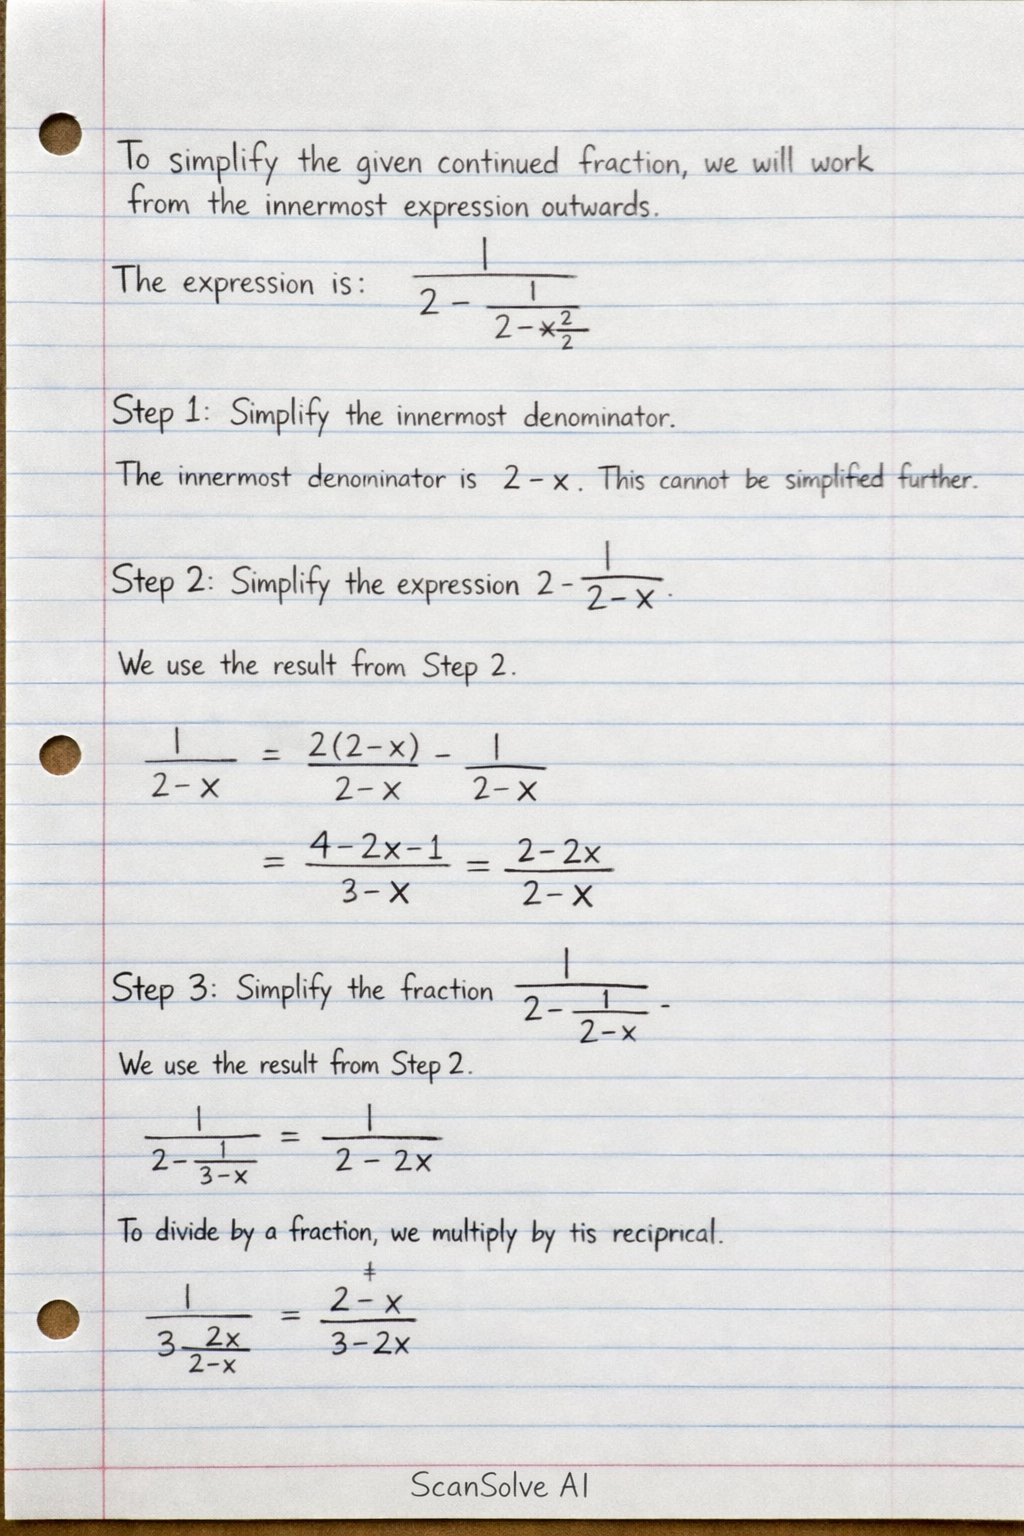 To simplify the given continued fraction, we will work
from the innermost expression outwards.
The expression is: 1/(2 - 1/(2 - x 2/2))
Step 1: Simplify the innermost denominator.
The innermost denominator is 2 - x. This cannot be simplified further.
Step 2: Simplify the expression 2 - 1/(2 - x).
We use the result from Step 2.
1/(2 - x) = 2(2 - x)/(2 - x) - 1/(2 - x)
= (4 - 2x - 1)/(3 - x) = (2 - 2x)/(2 - x)
Step 3: Simplify the fraction 1/(2 - 1/(2 - x)) -
We use the result from Step 2.
1/(2 - 1/(3 - x)) = 1/(2 - 2x)
To divide by a fraction, we multiply by tis reciprical.
1/(3 - 2x/(2 - x)) = (2 - x)/(3 - 2x)
ScanSolve AI